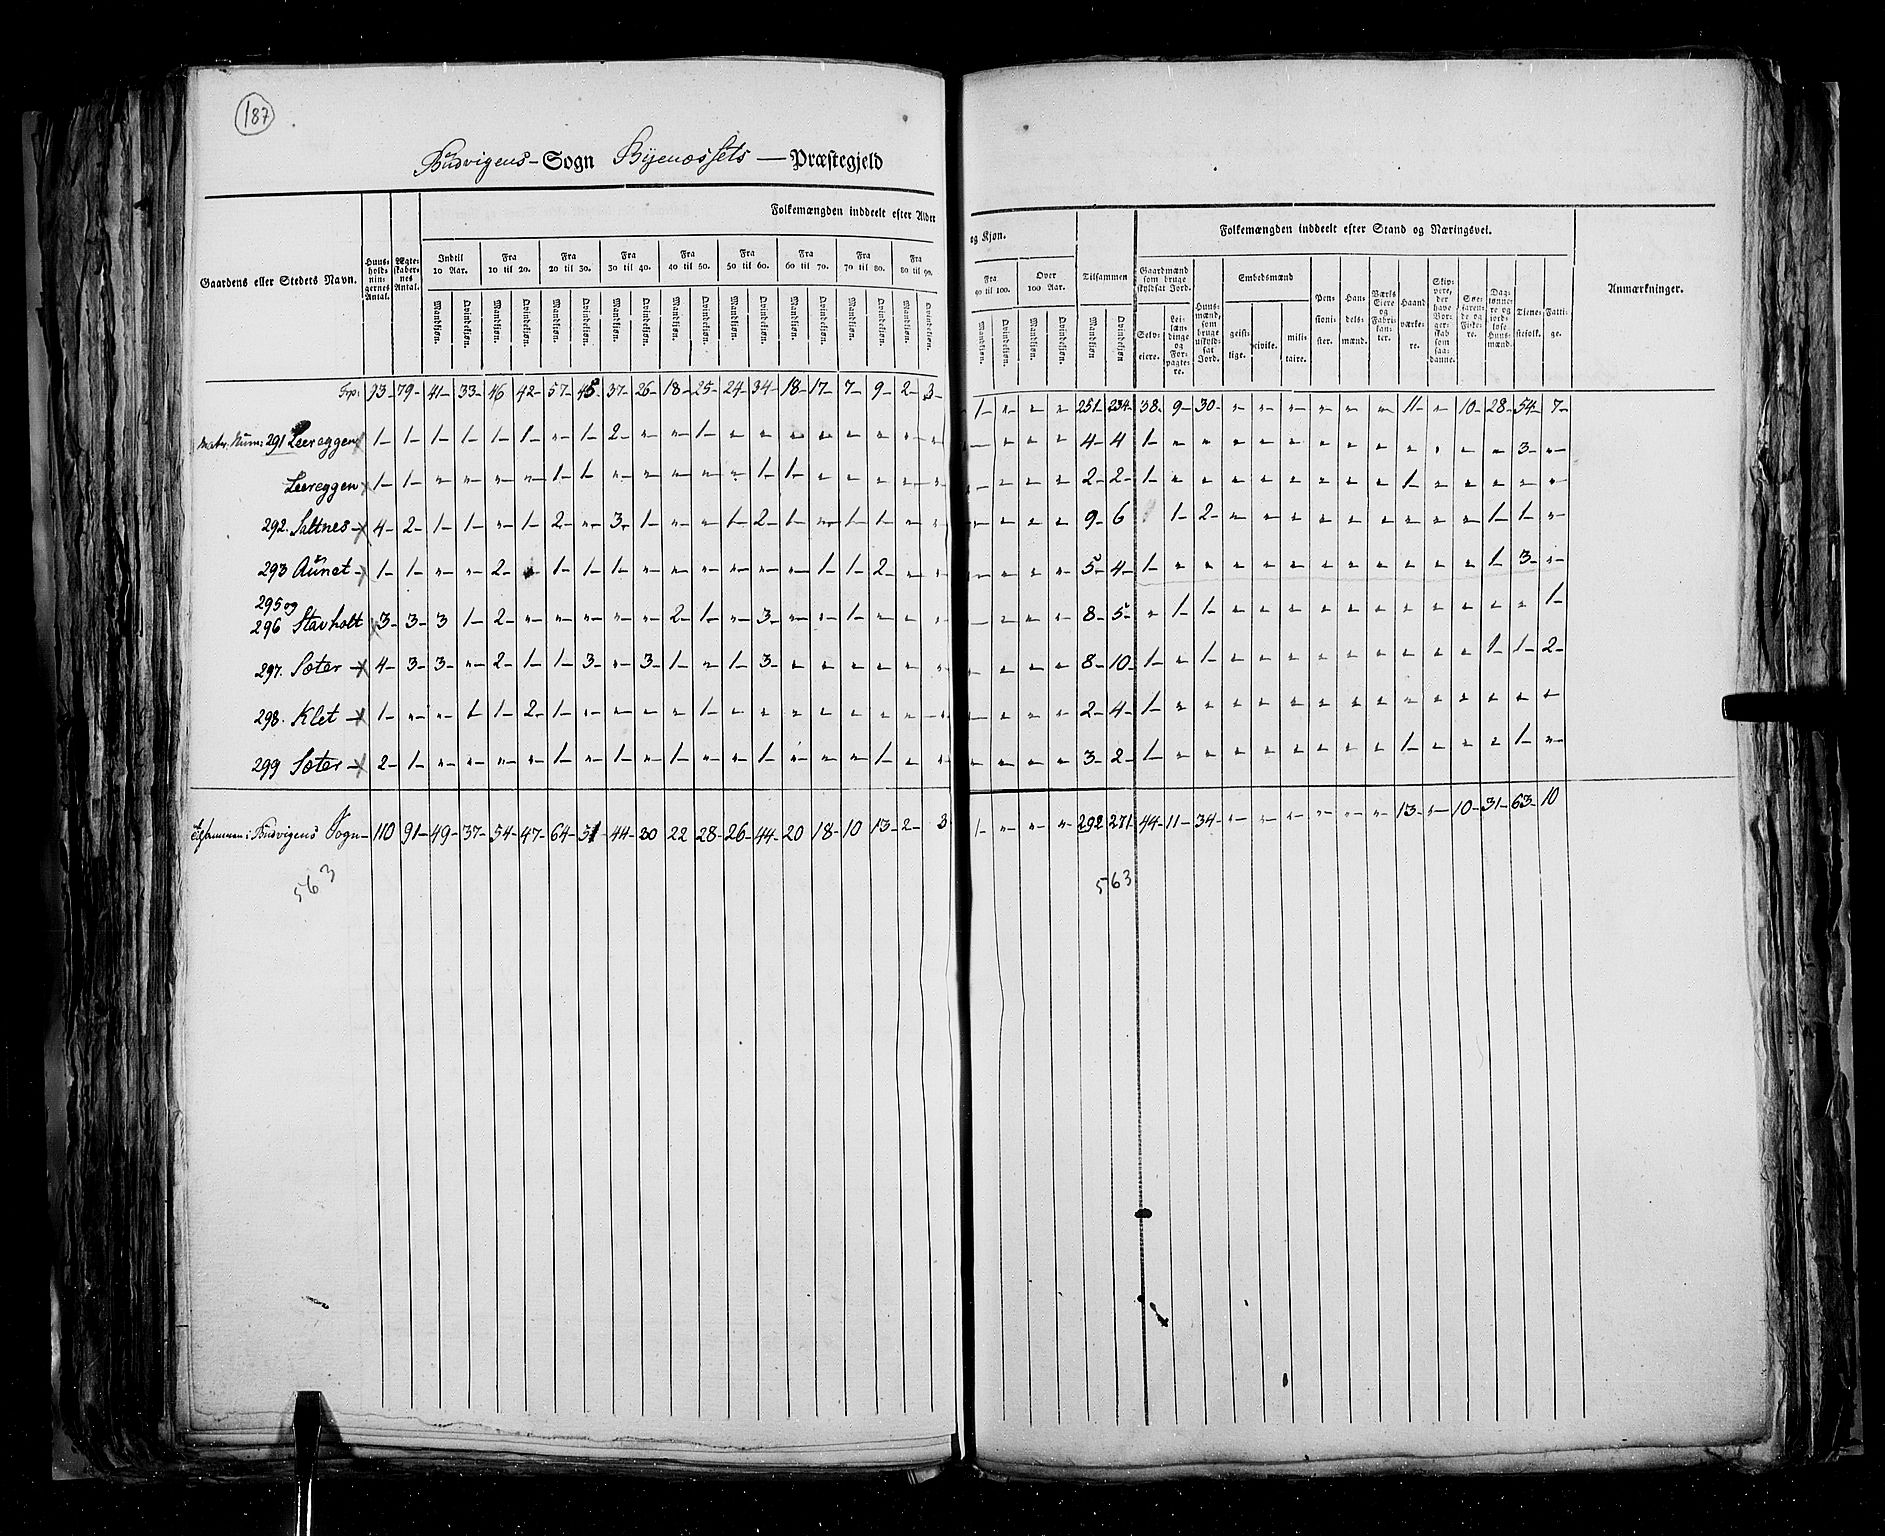 187
Budvigens - Sogn Byenæssets — Præstegjeld
Gaardens eller Stedets Navn.
Huusholdningernes Antal.
Ægteskabernes Antal.
Folkemængden inddeelt efter Alder
Indtil 10 Aar. Fra 10 til 20. Fra 20 til 30. Fra 30 til 40. Fra 40 til 50. Fra 50 til 60. Fra 60 til 70. Fra 70 til 80. Fra 80 til 90.
Mandkjøn. Qvindekjøn. Mandkjøn. Qvindekjøn. Mandkjøn. Qvindekjøn. Mandkjøn. Qvindekjøn. Mandkjøn. Qvindekjøn. Mandkjøn. Qvindekjøn. Mandkjøn. Qvindekjøn. Mandkjøn. Qvindekjøn. Mandkjøn. Qvindekjøn.
og Kjøn.
Fra 90 til 100. Over 100 Aar. Tilsammen
Mandkjøn. Qvindekjøn. Mandkjøn. Qvindekjøn. Mandkjøn Qvindekjøn
Folkemængden inddeelt efter Stand og Næringsvei.
Gaardmænd som bruge skyldsat Jord.
Selveiere. Leilændinge og Forpagtere.
Huusmænd, som bruge uskyldsat Jord.
Embedsmænd
geistlige. civile. militaire.
Pensionister. Handelsmænd. Værks Eiere og Fabrikanter. Haandværkere. Skippere, der have Borgerskab som saadanne. Søefarende og Fiskere. Daglønnere og jordløse Huusmænd. Tjenestefolk. Fattige.
Anmærkninger.
Trp: 93 - 79 - 41 - 33 - 46 42 - 57 - 45 37 - 26 - 18 - 25 - 24 - 34 - 18 - 17 - 7 - 9 - 2 - 3 - 1 - " - " - " - 251 - 234 - 38 - 9 - 30 - " - " - " - " - " - " - 11 - " - 10 - 28 - 54 - 7 -
Matr. Num: 291 Leereggen 1 - 1 - 1 - 1 - 1 - 1 - " - 1 - 2 - " - " - 1 - " - " - " - " - " - " - " - " - " - " - " - " - 4 - 4 1 - " - " - " - " - " - " - " - " - " - " - " - " - 3 - " -
Leereggen 1 - 1 - " - " - " - " - 1 - 1 - " - " - " - " - " - 1 - 1 - " - " - " - " - " - " - " - " - " - 2 - 2 - 1 - " - " - " - " - " - " - " - " - 1 - " - " - " - " - " -
292. Saltnes - 4 - 2 - 1 - 1 - " - 1 - 2 - " - 3 - 1 - " - " - 1 - 2 - 1 - " - 1 - 1 - " - " - " - " - " - " - 9 - 6 1 - 2 - " - " - " - " - " - " - " - " - " - 1 - 1 - " -
293 Aunet - 1 - 1 - " - " - 2 - " 1 - 1 - 1 - " - " - " - " - " - " - 1 - 1 - 2 - " - " - " - " - " - " - 5 - 4 - 1 - " - " - " - " - " - " - " - " - " - " - " - 1 - 3 - " -
295 og
296 Stavholt 3 - 3 - 3 1 - 2 - " - " - " - " - " - 2 - 1 - " - 3 - " - " - 1 - " - " - " - " - " - " - " - 8 - 5 - " - 1 - 1 - " - " - " - " - " - " - " - " - " - " - " - 1 -
297. Sæter - 4 - 3 - 3 - " - 2 - 1 - 1 - 3 - " - 3 - 1 - " - 1 - 3 - " - " - " - " - " - " - " - " - " - " - 8 - 10 - 1 - " - 1 - " - " - " - " - " - " - " - " - " - 1 - 1 - 2 -
298. Klet - 1 - " - " - 1 - 1 - 2 - 1 - " - " - " - " - 1 - " - " - " - " - " - " - " - " - " - " - " - " - 2 - 4 - 1 - " - " - " - " - " - " - " - " - " - " - " - " - " - " -
299 Sæter - 2 - 1 - " - " - " - " - 1 - " - 1 - " - 1 - " - " - 1 - " - " - " - 1 - " - " - " - " - " - " - 3 - 2 - 1 - " - " - " - " - " - " - " - " - 1 - " - " - " - 1 - " -
Tilsammen i Budvigens Sogn - 110 91 - 49 - 37 - 54 - 47 - 64 - 51 - 44 - 30 22 - 28 - 26 - 44 - 20 18 - 10 13 - 2 - 3 1 - " - " - " - 292 271 44 - 11 - 34 - " - " - " - " - " - " - 13 - " - 10 - 31 - 63 - 10
563 563